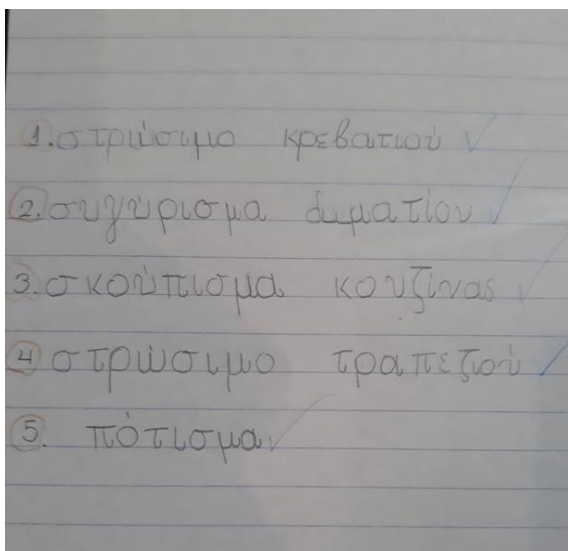 1. στρώσιμο κρεβατιού ✓
2. συγύρισμα δωματίου ✓
3. σκούπισμα κουζίνας ✓
4 στρώσιμο τραπεζιού ✓
5. πότισμα ✓